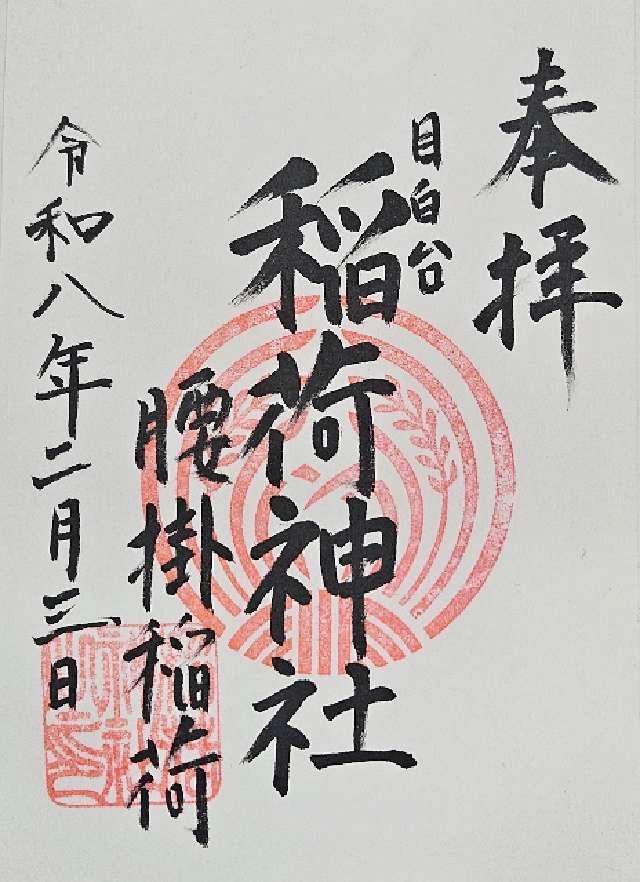 奉拝
目白台
稲荷神社
腰掛稲荷
令和八年二月三日